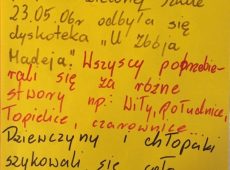 23.05.06r odbyła się
dyskoteka "U Zbója
Madeja." Wszyscy poprzebie-
rali się za różne
stwory np: Wiły, Południce,
Topielice, czarownice...
Dziewczyny i chłopaki
szykowali się